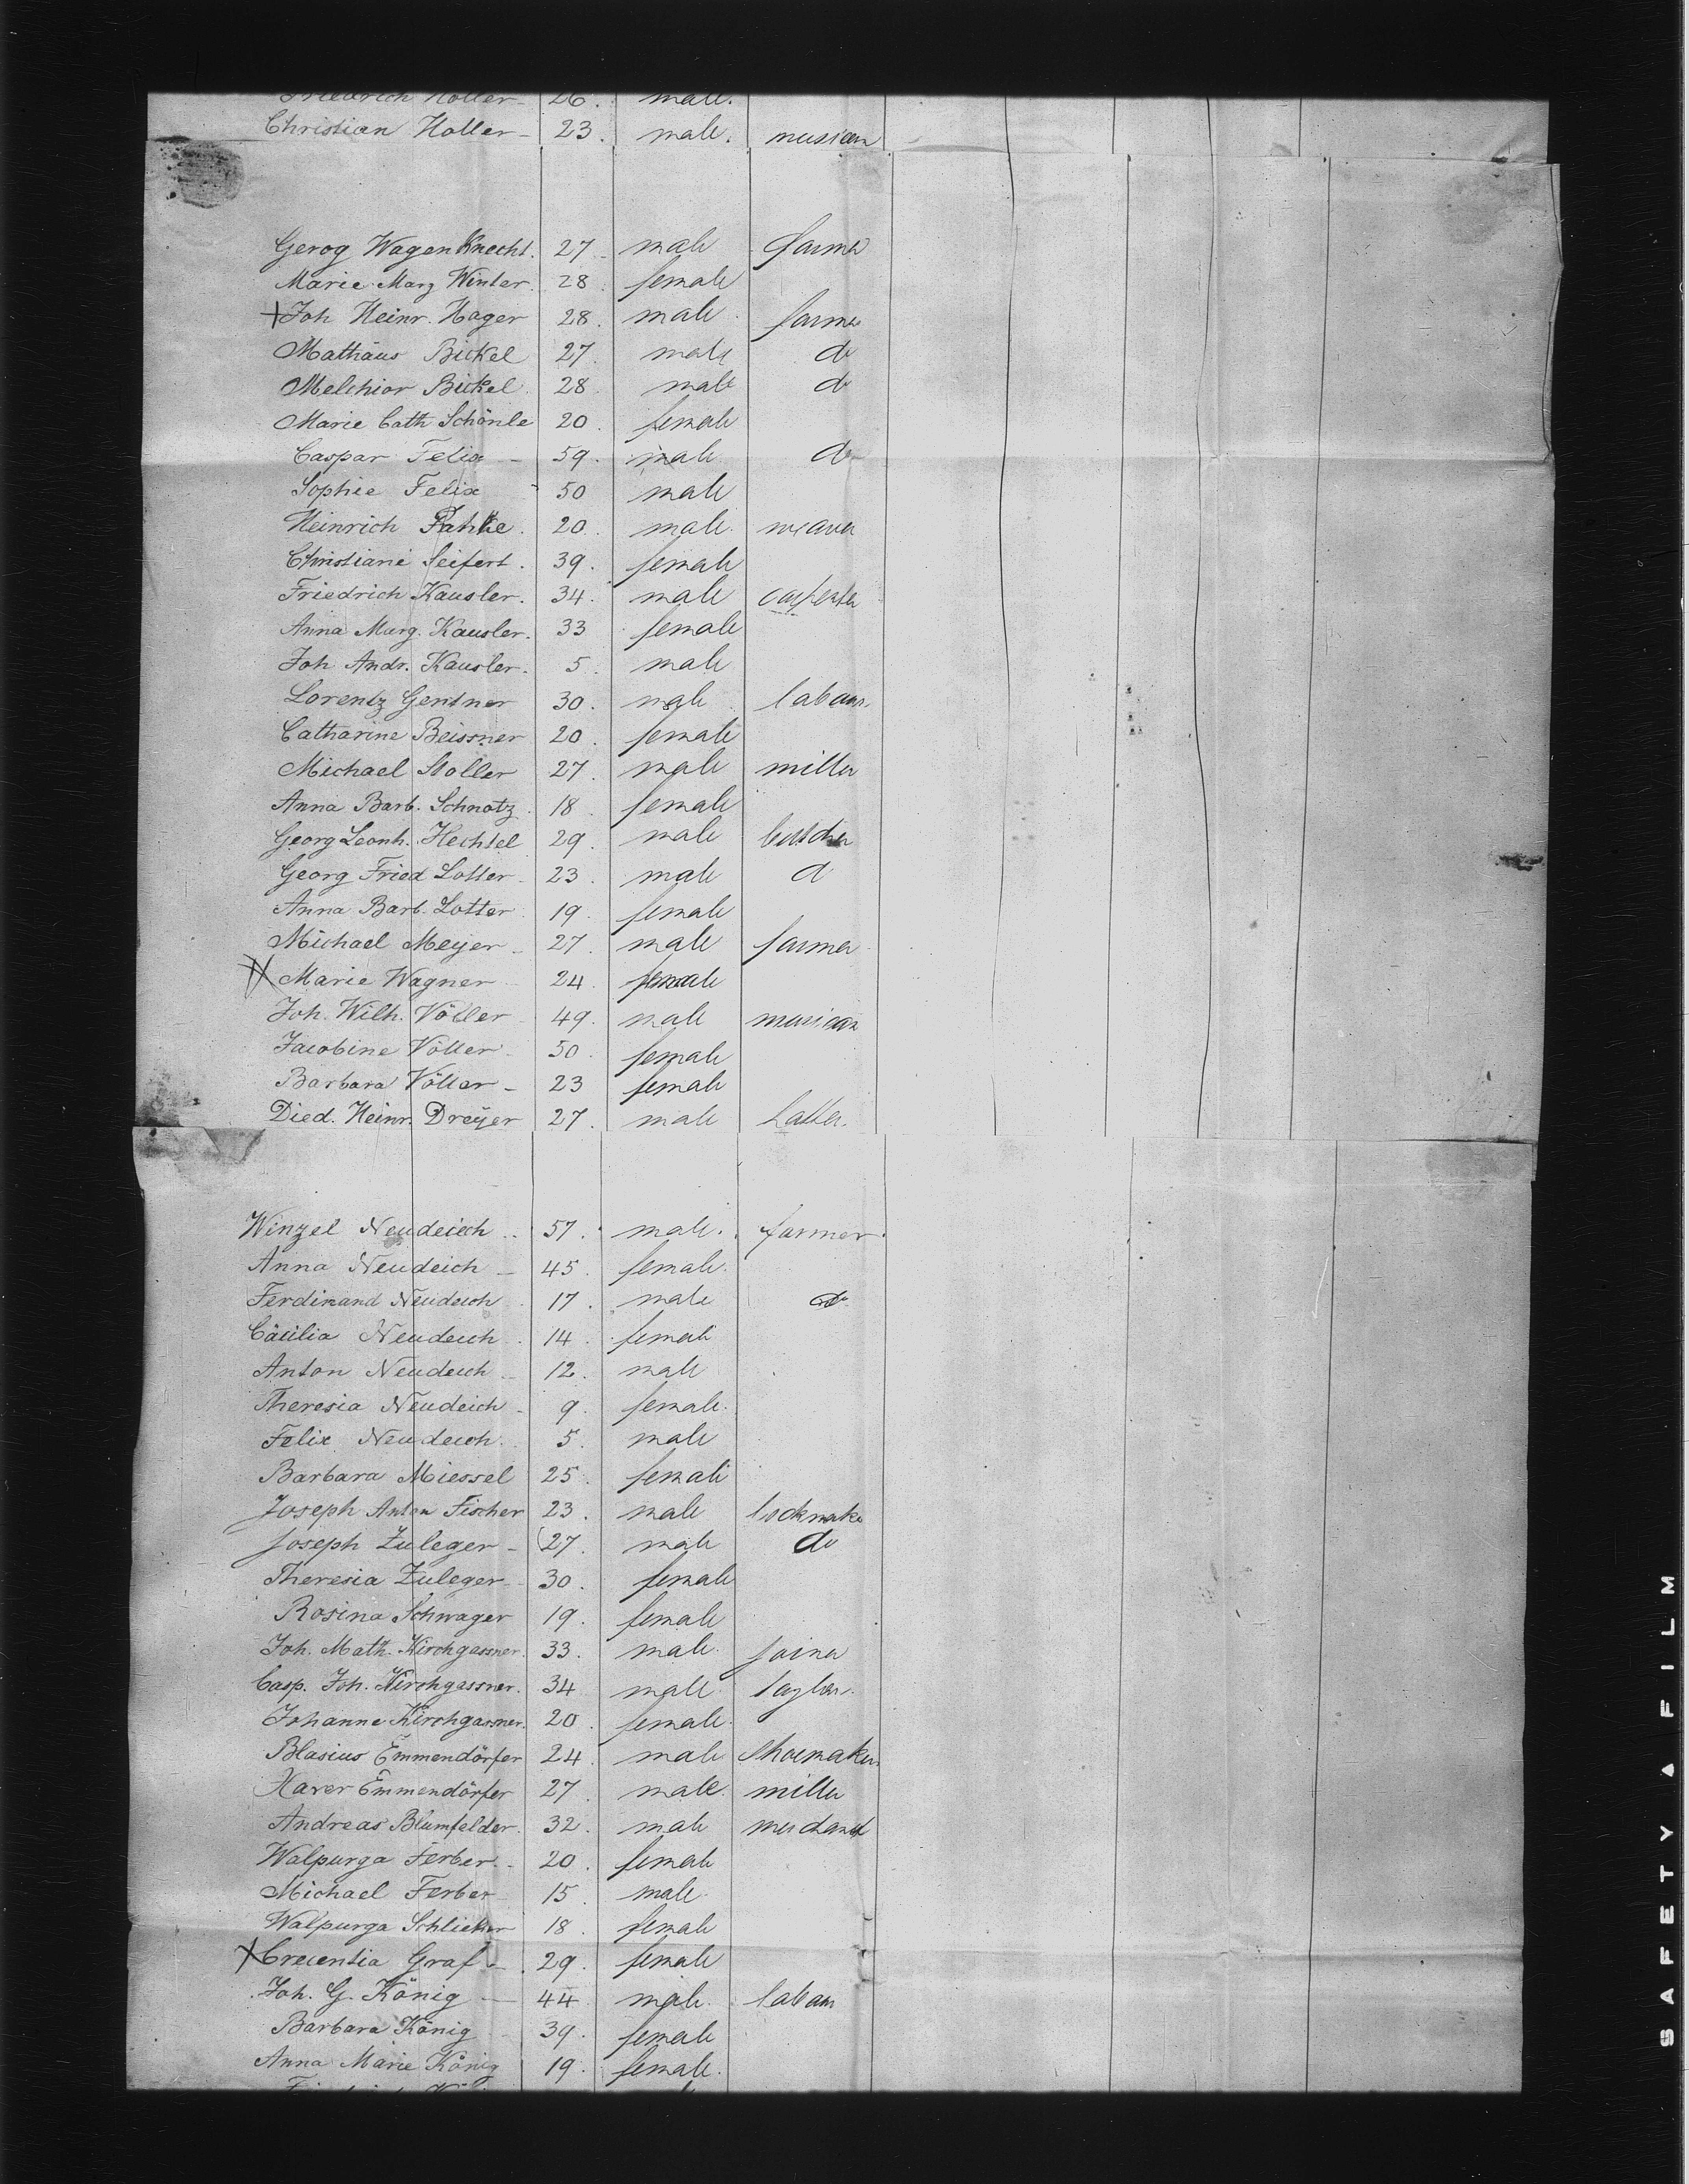 Friedrich Holler 26. male.
Christian Holler 23. male. musician
Gerog Wagenknecht. 27 male farmer
Marie Marg Winter. 28. female
+ Joh Heinr. Hager 28. male farmer
Mathäus Bickel 27. male do
Melchior Bickel. 28. male do
Marie Cath Schönle 20. female
Caspar Felix 59. male do
Sophie Felix 50 male
Heinrich 20. male. weaver
Christiane Seifert. 39. female
Friedrich Kausler. 34. male carpenter
Anna Marg. Kausler. 33 female
Joh Andr. Kausler. 5. male
Lorentz Gentner 30. male labour.
Catharine Beissner 20. female
Michael Stoller 27. male miller
Anna Barb. Schnotz 18. female
Georg Leonh. Hechtel 29. male butcher
Georg Fried Lotter 23. male d
Anna Barb. Lotter 19. female
Michael Meijer 27. male farmer
X Marie Wagner 24. female
Joh. Wilh. Völler 49. male musician
Jacobine Völler 50. female
Barbara Völler 23 female
Died. Heinr. Dreijer 27. male hatter.
Winzel Neudeich 57. male. farmer.
Anna Neudeich 45. female.
Ferdinand Neudeich 17. male do
Cäcilia Neudeich 14. female
Anton Neudeich 12. male
Theresia Neudeich 9. female.
Felix Neudeich. 5. male
Barbara Miessel 25. female
Joseph Anton Fischer 23. male lockmaker
Joseph Zuleger 27. male do
Theresia Zuleger 30. female
Rosina Schwager 19. female
Joh. Math. Kirchgassner. 33. male. joiner
Casp. Joh. Kirchgassner. 34 male taylor.
Johanne Kirchgassner. 20. female.
Blasius Emmendörfer 24. male shoemaker
Xaver Emmendörfer 27. male. miller
Andreas Blumfelder. 32. male merchant
Walpurga Ferber. 20. female
Michael Ferber 15. male.
Walpurga 18. female
X Crecentia Graf 29. female
Joh. G. König 44. male. labour
Barbara König 39. female
Anna Marie König 19. female.